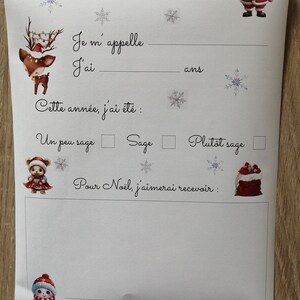 Je m'appelle
J'ai ans
Cette année, j'ai été :
Un peu sage Sage Plutôt sage
Pour Noël, j'aimerai recevoir :